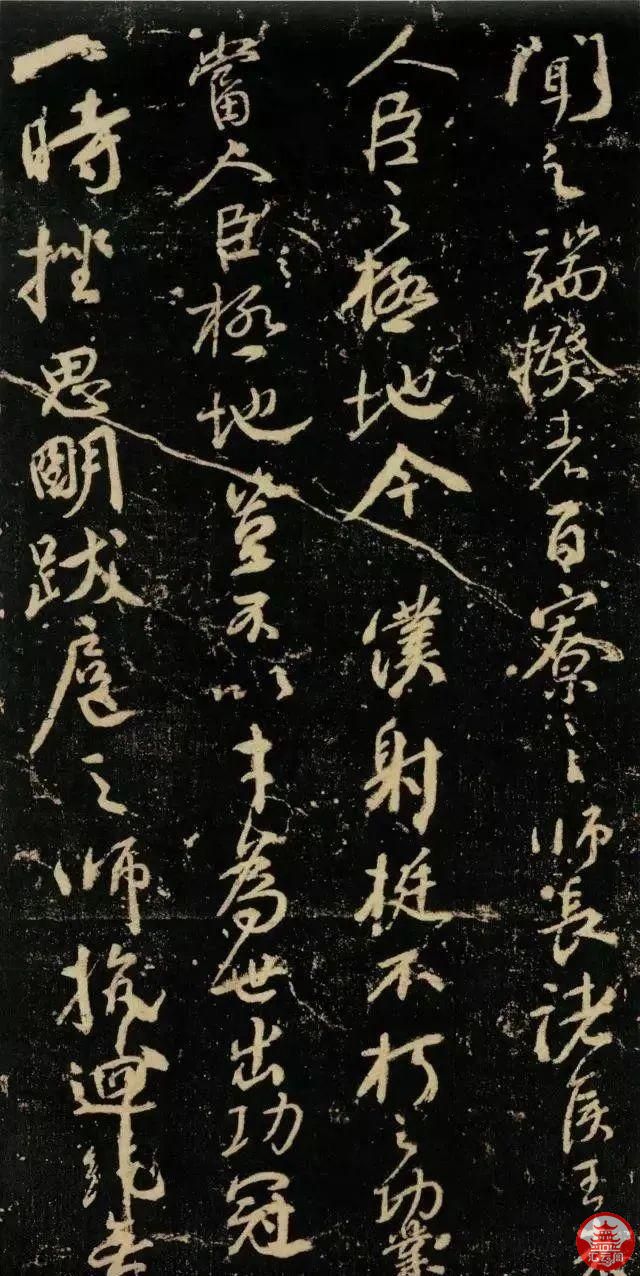 聞之端揆者百寮之師長諸侯王
人臣之極地今僕射挺不朽之功業
當人臣之極地豈不以才為世出功冠
一時挫思明跋扈之師抗迴紇無